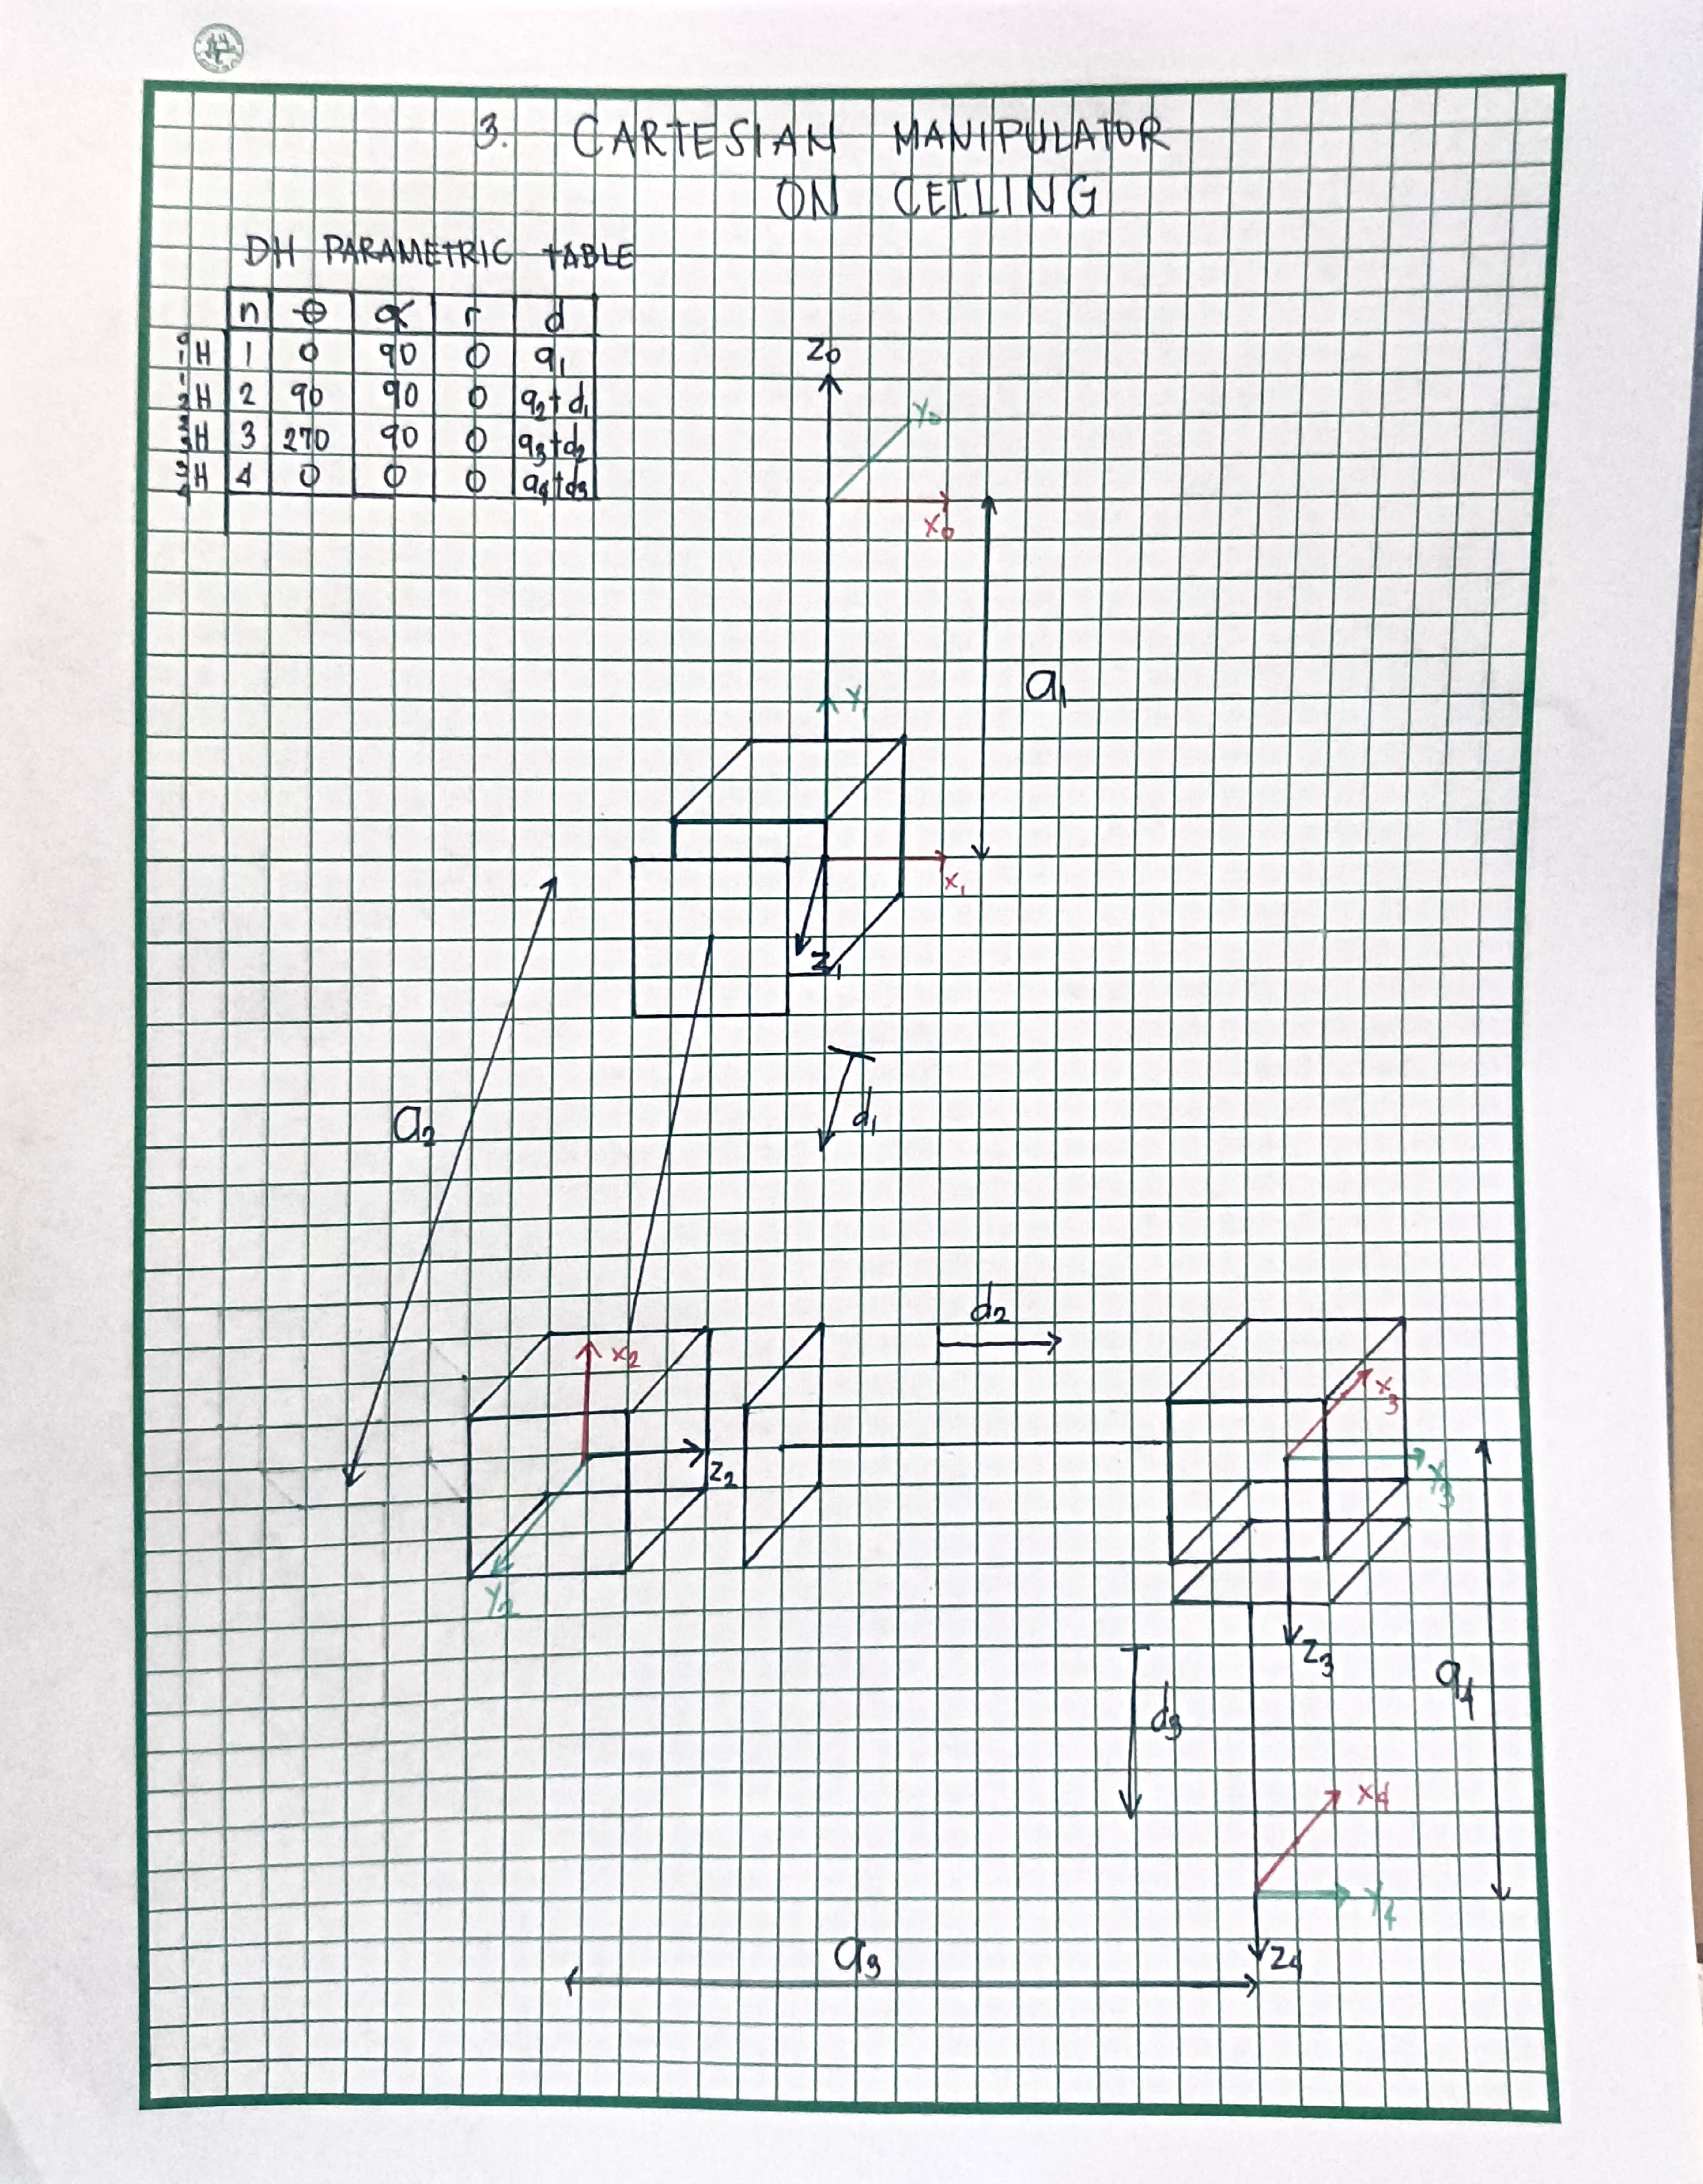 3. CARTESIAN MANIPULATOR
ON CEILING
DH PARAMETRIC TABLE
n θ α r d
0 1 H 1 0 90 0 a1
1 2 H 2 90 90 0 a2+d1
2 3 H 3 270 90 0 a3+d2
3 4 H 4 0 0 0 a4+d3
Z0
Y0
X0
a1
Y1
X1
Z1
a2
d1
d2
X2
X3
Z2
Y3
Y2
Z3
a4
d3
X4
Y4
a3
Z4